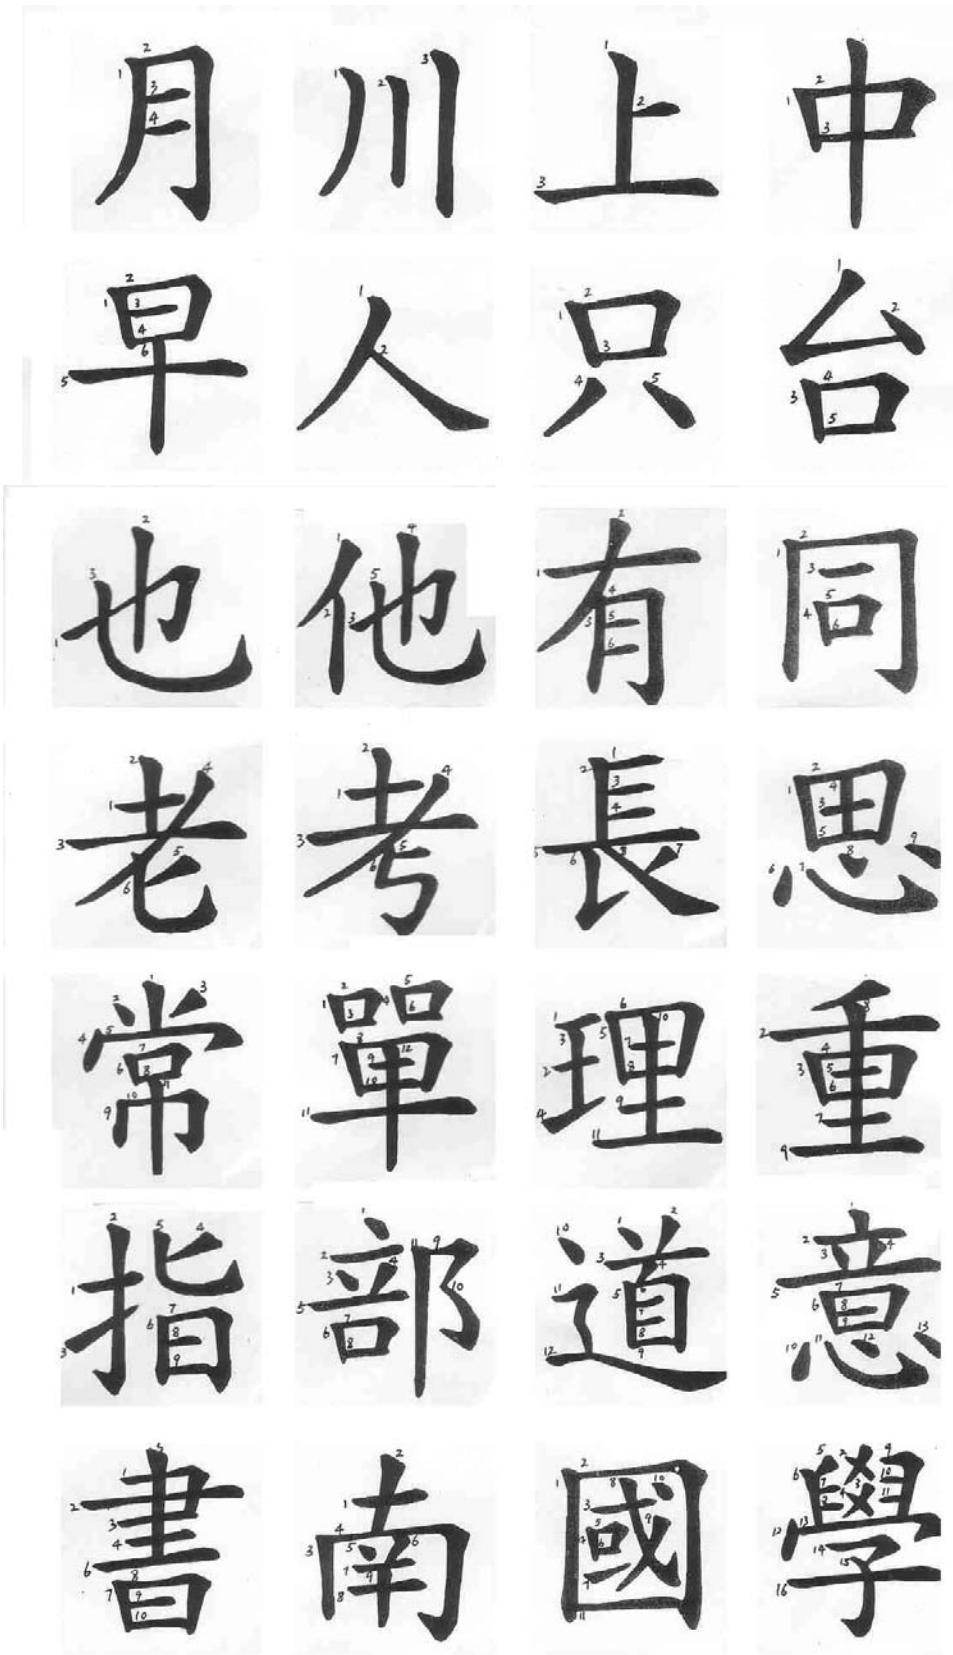 月川上中
早人只台
也他有同
老考長思
常單理重
指部道意
書南國學